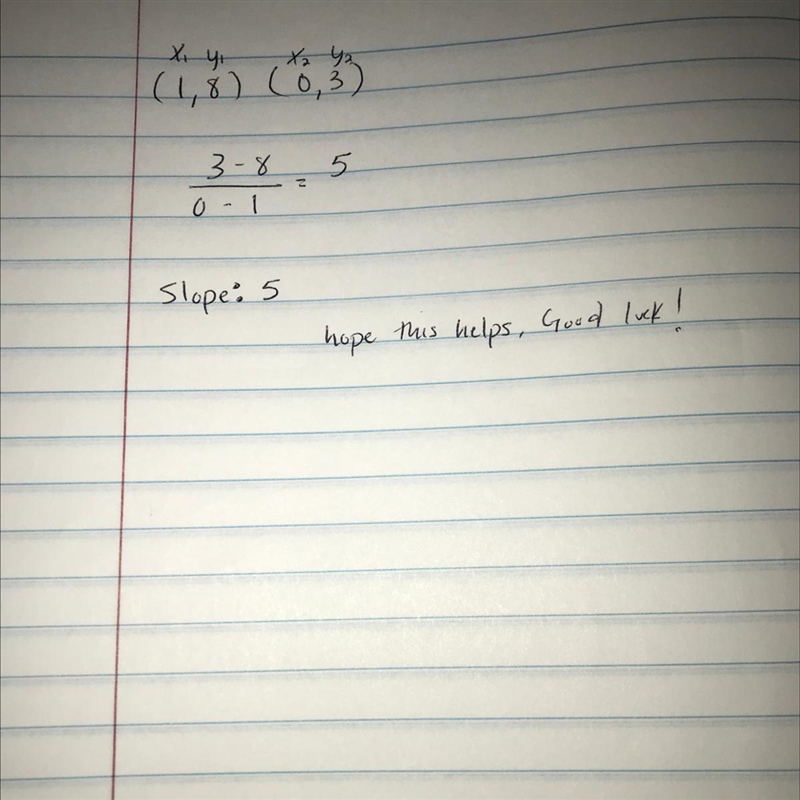 x₁ y₁ x₂ y₂
(1,8) (0,3)
3 - 8
0 - 1 = 5
Slope: 5
hope this helps, Good luck!